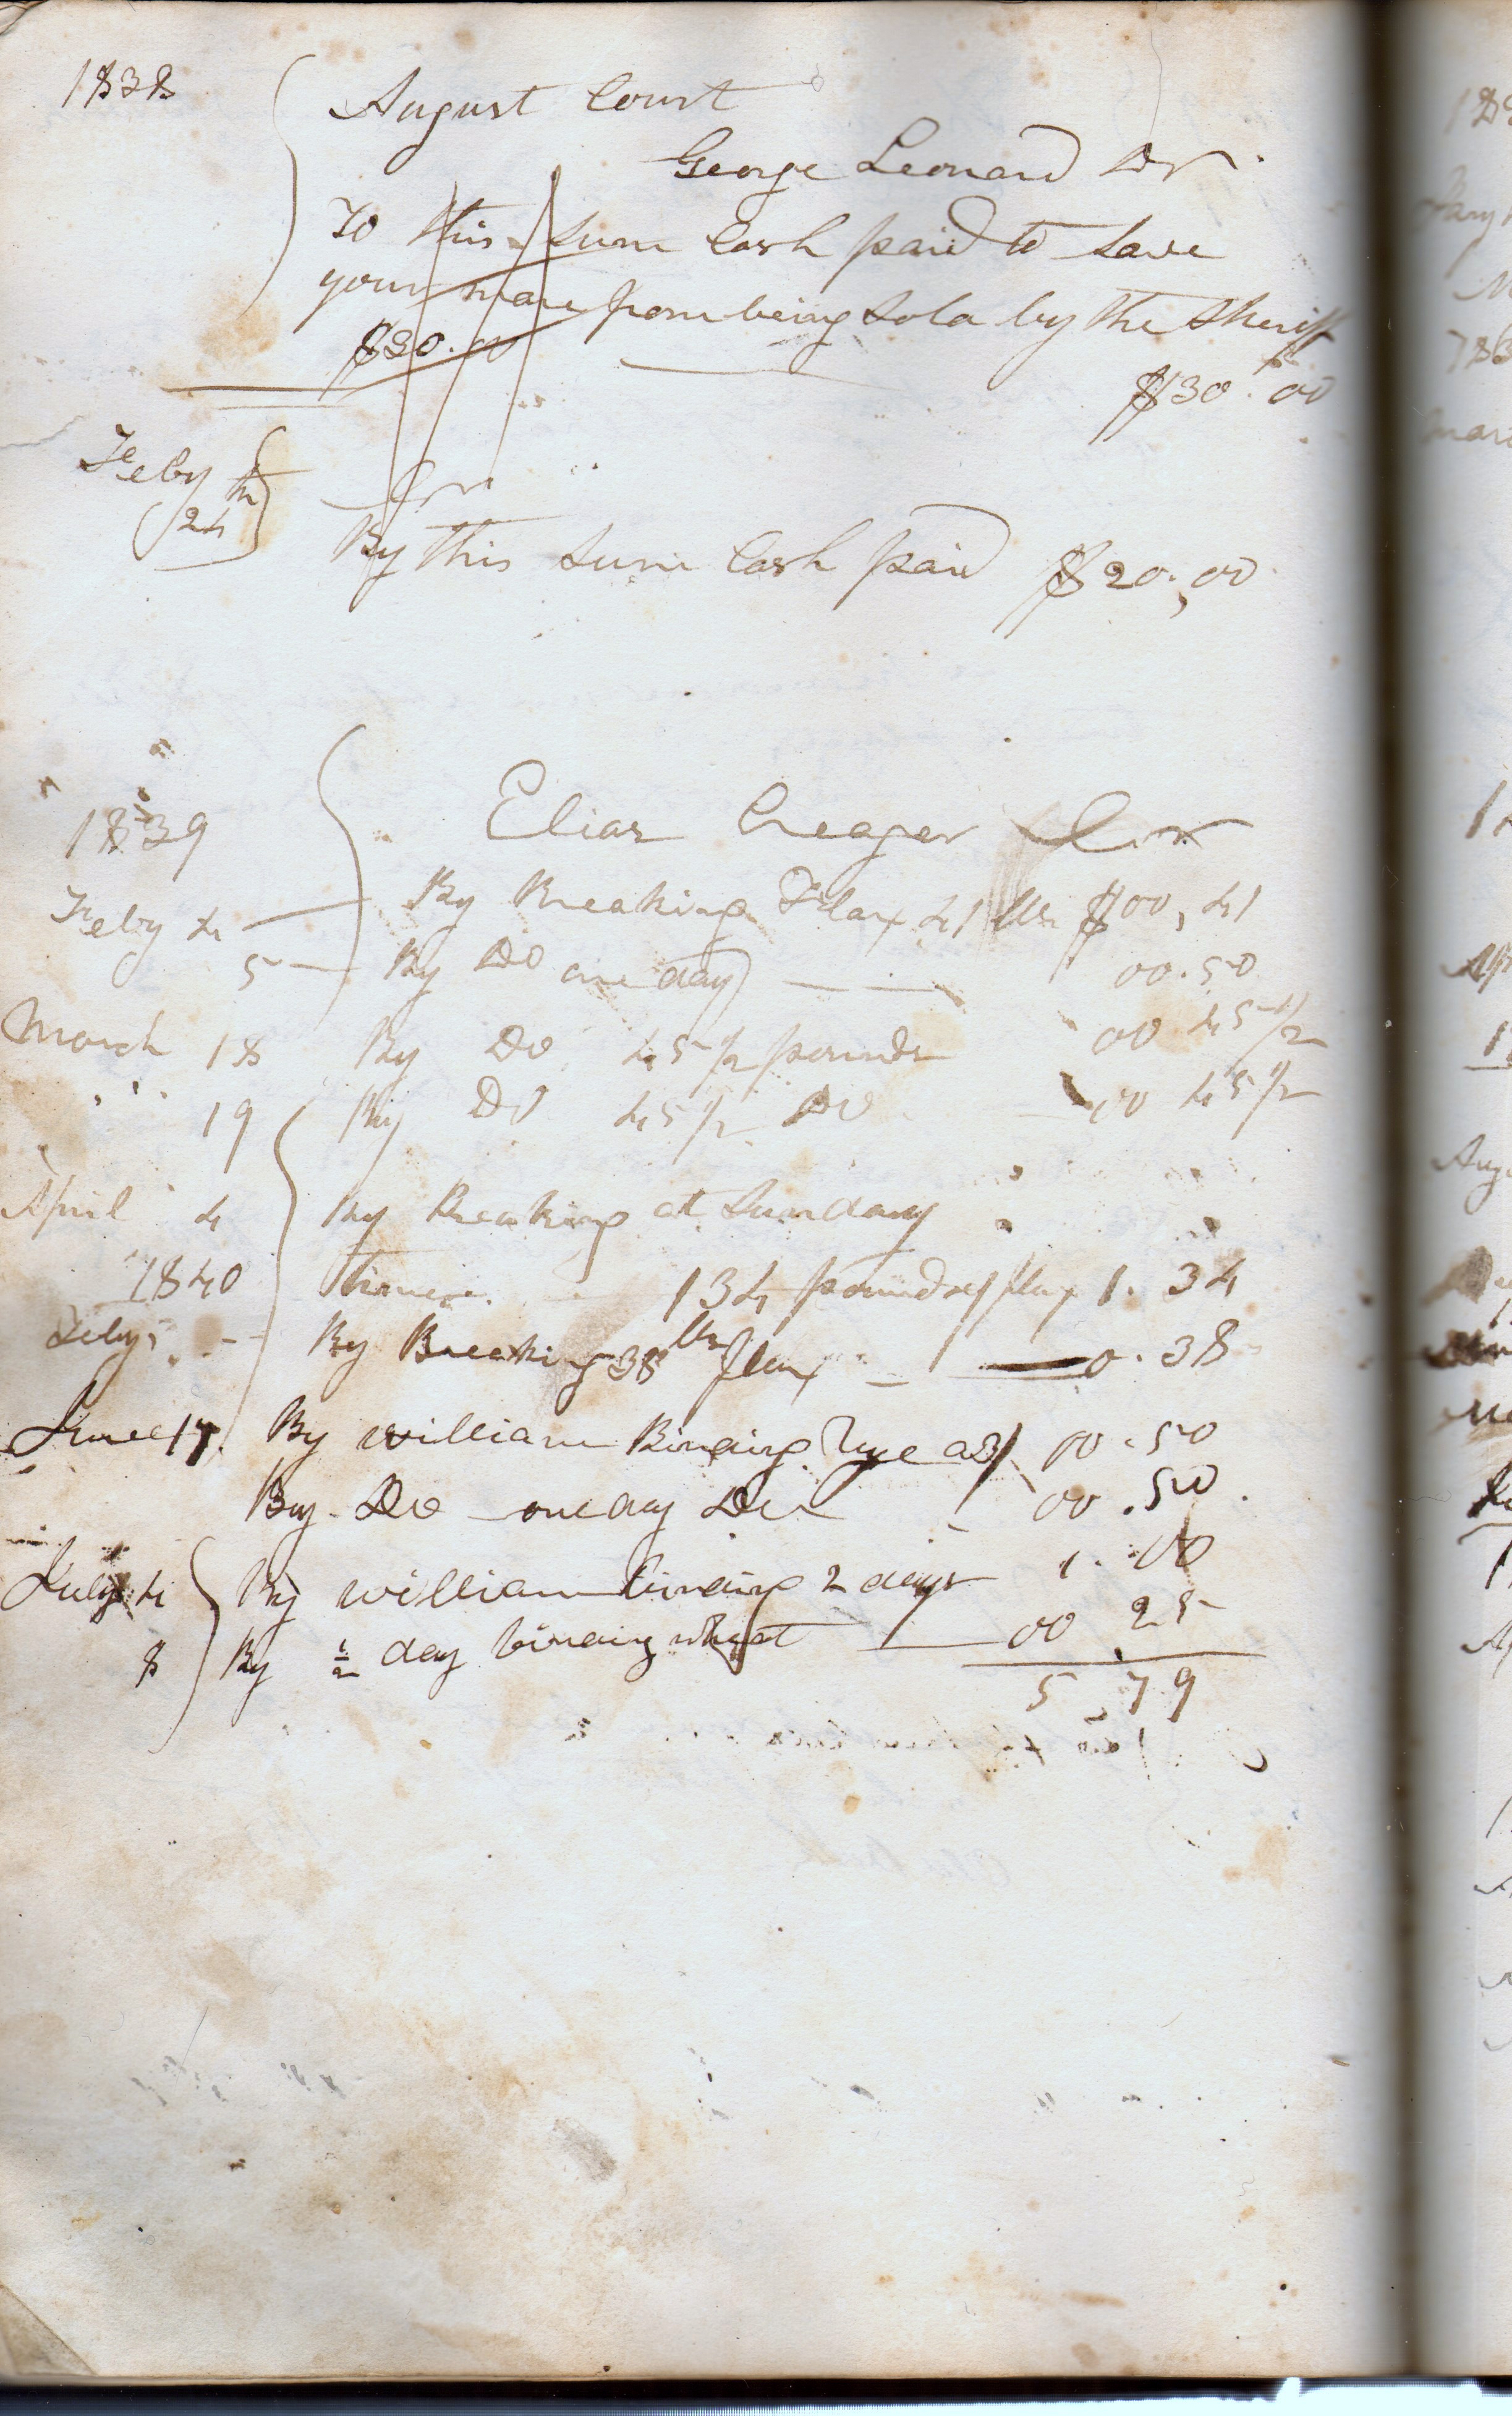 1838
August Court
George Leonard Dr
To this sum Cash paid to save
your mare from being sold by the Sheriff
$30.00
$30.00
Feby 24th
Cr
By this sum Cash paid $20,00
1839
Elias Creager Cr
Feby 4 By Breaking Flax 41 lbs $00,41
5 By Do one day 00.50
March 18 By Do 45 1/2 pounds 00 45 1/2
" " 19 By Do 45 1/2 Do 00 45 1/2
April 4 By Breaking at Sunday
1840 times 134 pounds of flax 1.34
Feby By Breaking 38 lbs flax 0.38
June 17 By William Binding Rye 00.50
By Do one day Do 00.50
July 4 By William binding 2 days 1.00
8 By 1/2 day binding wheat 00 25
5.79